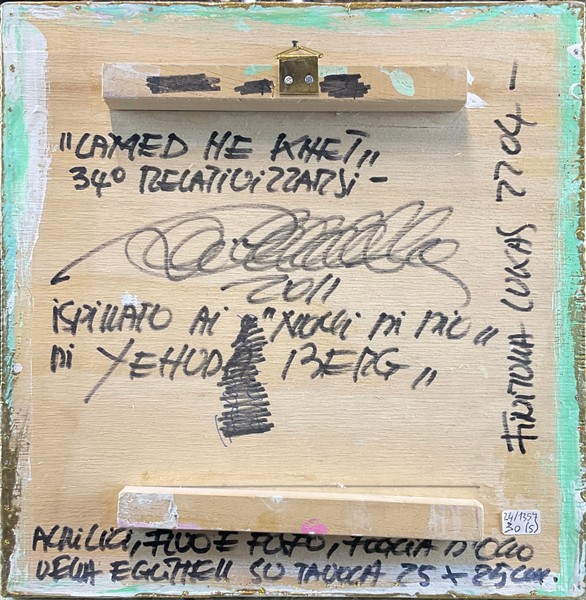 "LAMED HE KHET"
34° RELATIVIZZARSI -
2011
ISPIRATO AI "NOMI DI DIO"
DI YEHUDA BERG"
FIRMA LUKAS 7704 -
24/1357
30 (5)
ACRILICI, FLUO E FOSFO, FOGLIA D'ORO
DELLA EGGITHELL SU TAVOLA 25 x 25 cm.